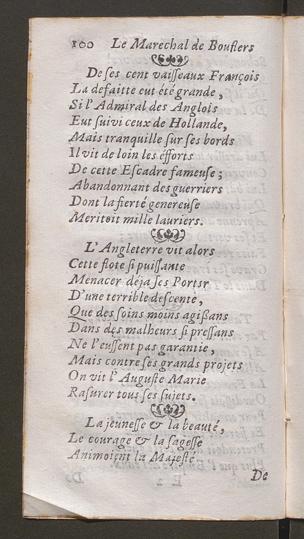 100 Le Marechal de Bouflers
De ses cent vaisseaux François
La defaitte eut été grande,
Si l'Admiral des Anglois
Eut suivi ceux de Hollande,
Mais tranquille sur ses bords
Il vit de loin les éfforts
De cette Escadre fameuse;
Abandonnant des guerriers
Dont la fierté genereuse
Meritoit mille lauriers.
L'Angleterre vit alors
Cette flote si puissante
Menacer deja ses Portsr
D'une terrible descente,
Que des soins moins agißans
Dans des malheurs si pressans
Ne l'eussent pas garantie,
Mais contre ses grands projets
On vit l'Auguste Marie
Rasurer tous ses sujets.
La jeunesse & la beauté,
Le courage & la sagesse
Animoient la Majesté
De